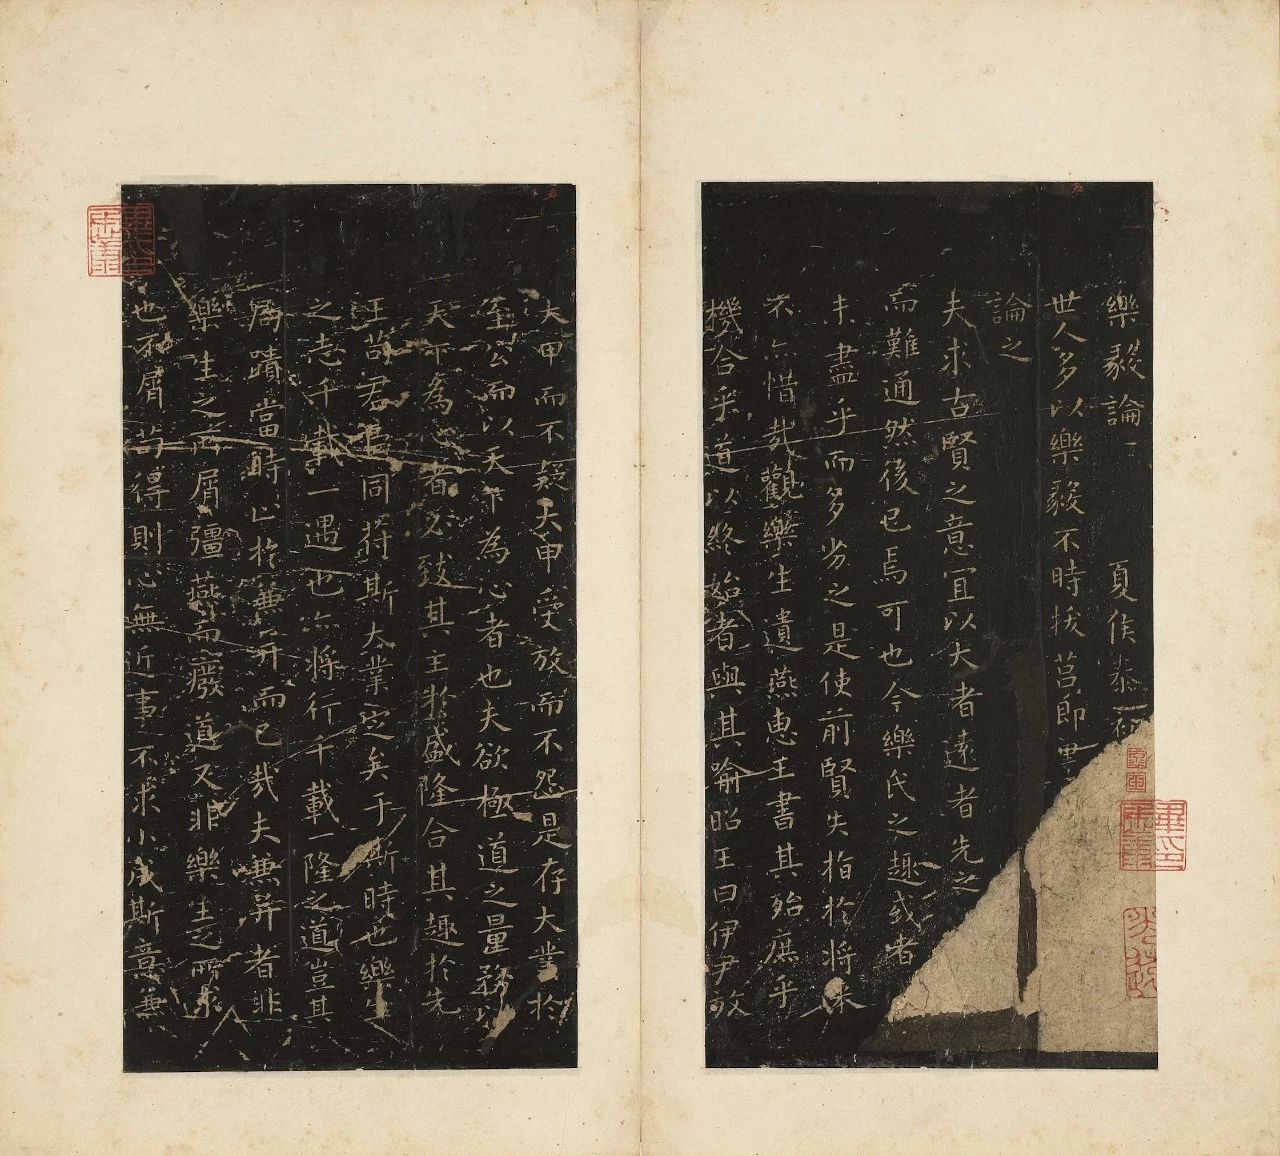 樂毅論 夏侯泰初
世人多以樂毅不時拔莒即墨
論之
夫求古賢之意宜以大者遠者先之
而難通然後已焉可也今樂氏之趣或者
未盡乎而多劣之是使前賢失指於將來
不亦惜哉觀樂生遺燕惠王書其殆庶乎
機合乎道以終始者與其喻昭王曰伊尹放
大甲而不疑大甲受放而不怨是存大業於
至公而以天下為心者也夫欲極道之量務以
天下為心者必致其主於盛隆合其趣於先
王苟君臣同符斯大業定矣于斯時也樂生
之志千載一遇也亦將行千載一隆之道豈其
局蹟當時止於兼并而已哉夫兼并者非
樂生之所屑彊燕而廢道又非樂生之所求
也不屑苟得則心無近事不求小成斯意兼